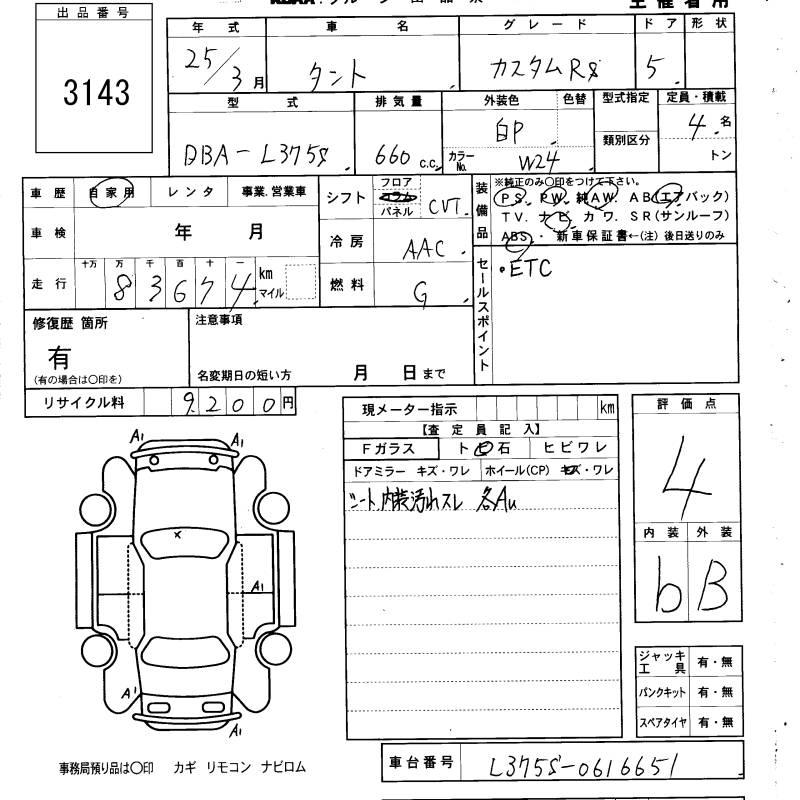 出品番号
3143
年式 車名 グレード ドア 形状
25/3月 タント カスタムRS 5
型式 排気量 外装色 色替 型式指定 定員・積載
DBA-L375S 660 c.c. 白P 類別区分 4名
カラーNo. W24 トン
車歴 自家用 レンタ 事業.営業車
シフト フロア コラム パネル CVT
装備品 ※純正のみ○印をつけて下さい。
PS. PW. 純AW. AB(エアバック)
TV. ナビ. カワ. SR(サンルーフ)
ABS. 新車保証書←(注)後日送りのみ
車検 年 月
冷房 AAC
走行 十万 万 千 百 十 一
83674 km マイル
燃料 G
セールスポイント
・ETC
修復歴 箇所
有
(有の場合は○印を)
注意事項
名変期日の短い方 月 日まで
リサイクル料 9200円
現メーター指示 km
【査定員記入】
Fガラス トビ石 ヒビワレ
ドアミラー キズ・ワレ ホイール(CP) キズ・ワレ
シート、内装汚れスレ 各AU
評価点
4
内装 外装
b B
A1 A1
X
A1
A1 A1
ジャッキ工具 有・無
パンクキット 有・無
スペアタイヤ 有・無
事務局預り品は○印 カギ リモコン ナビロム
車台番号 L375S-0616651